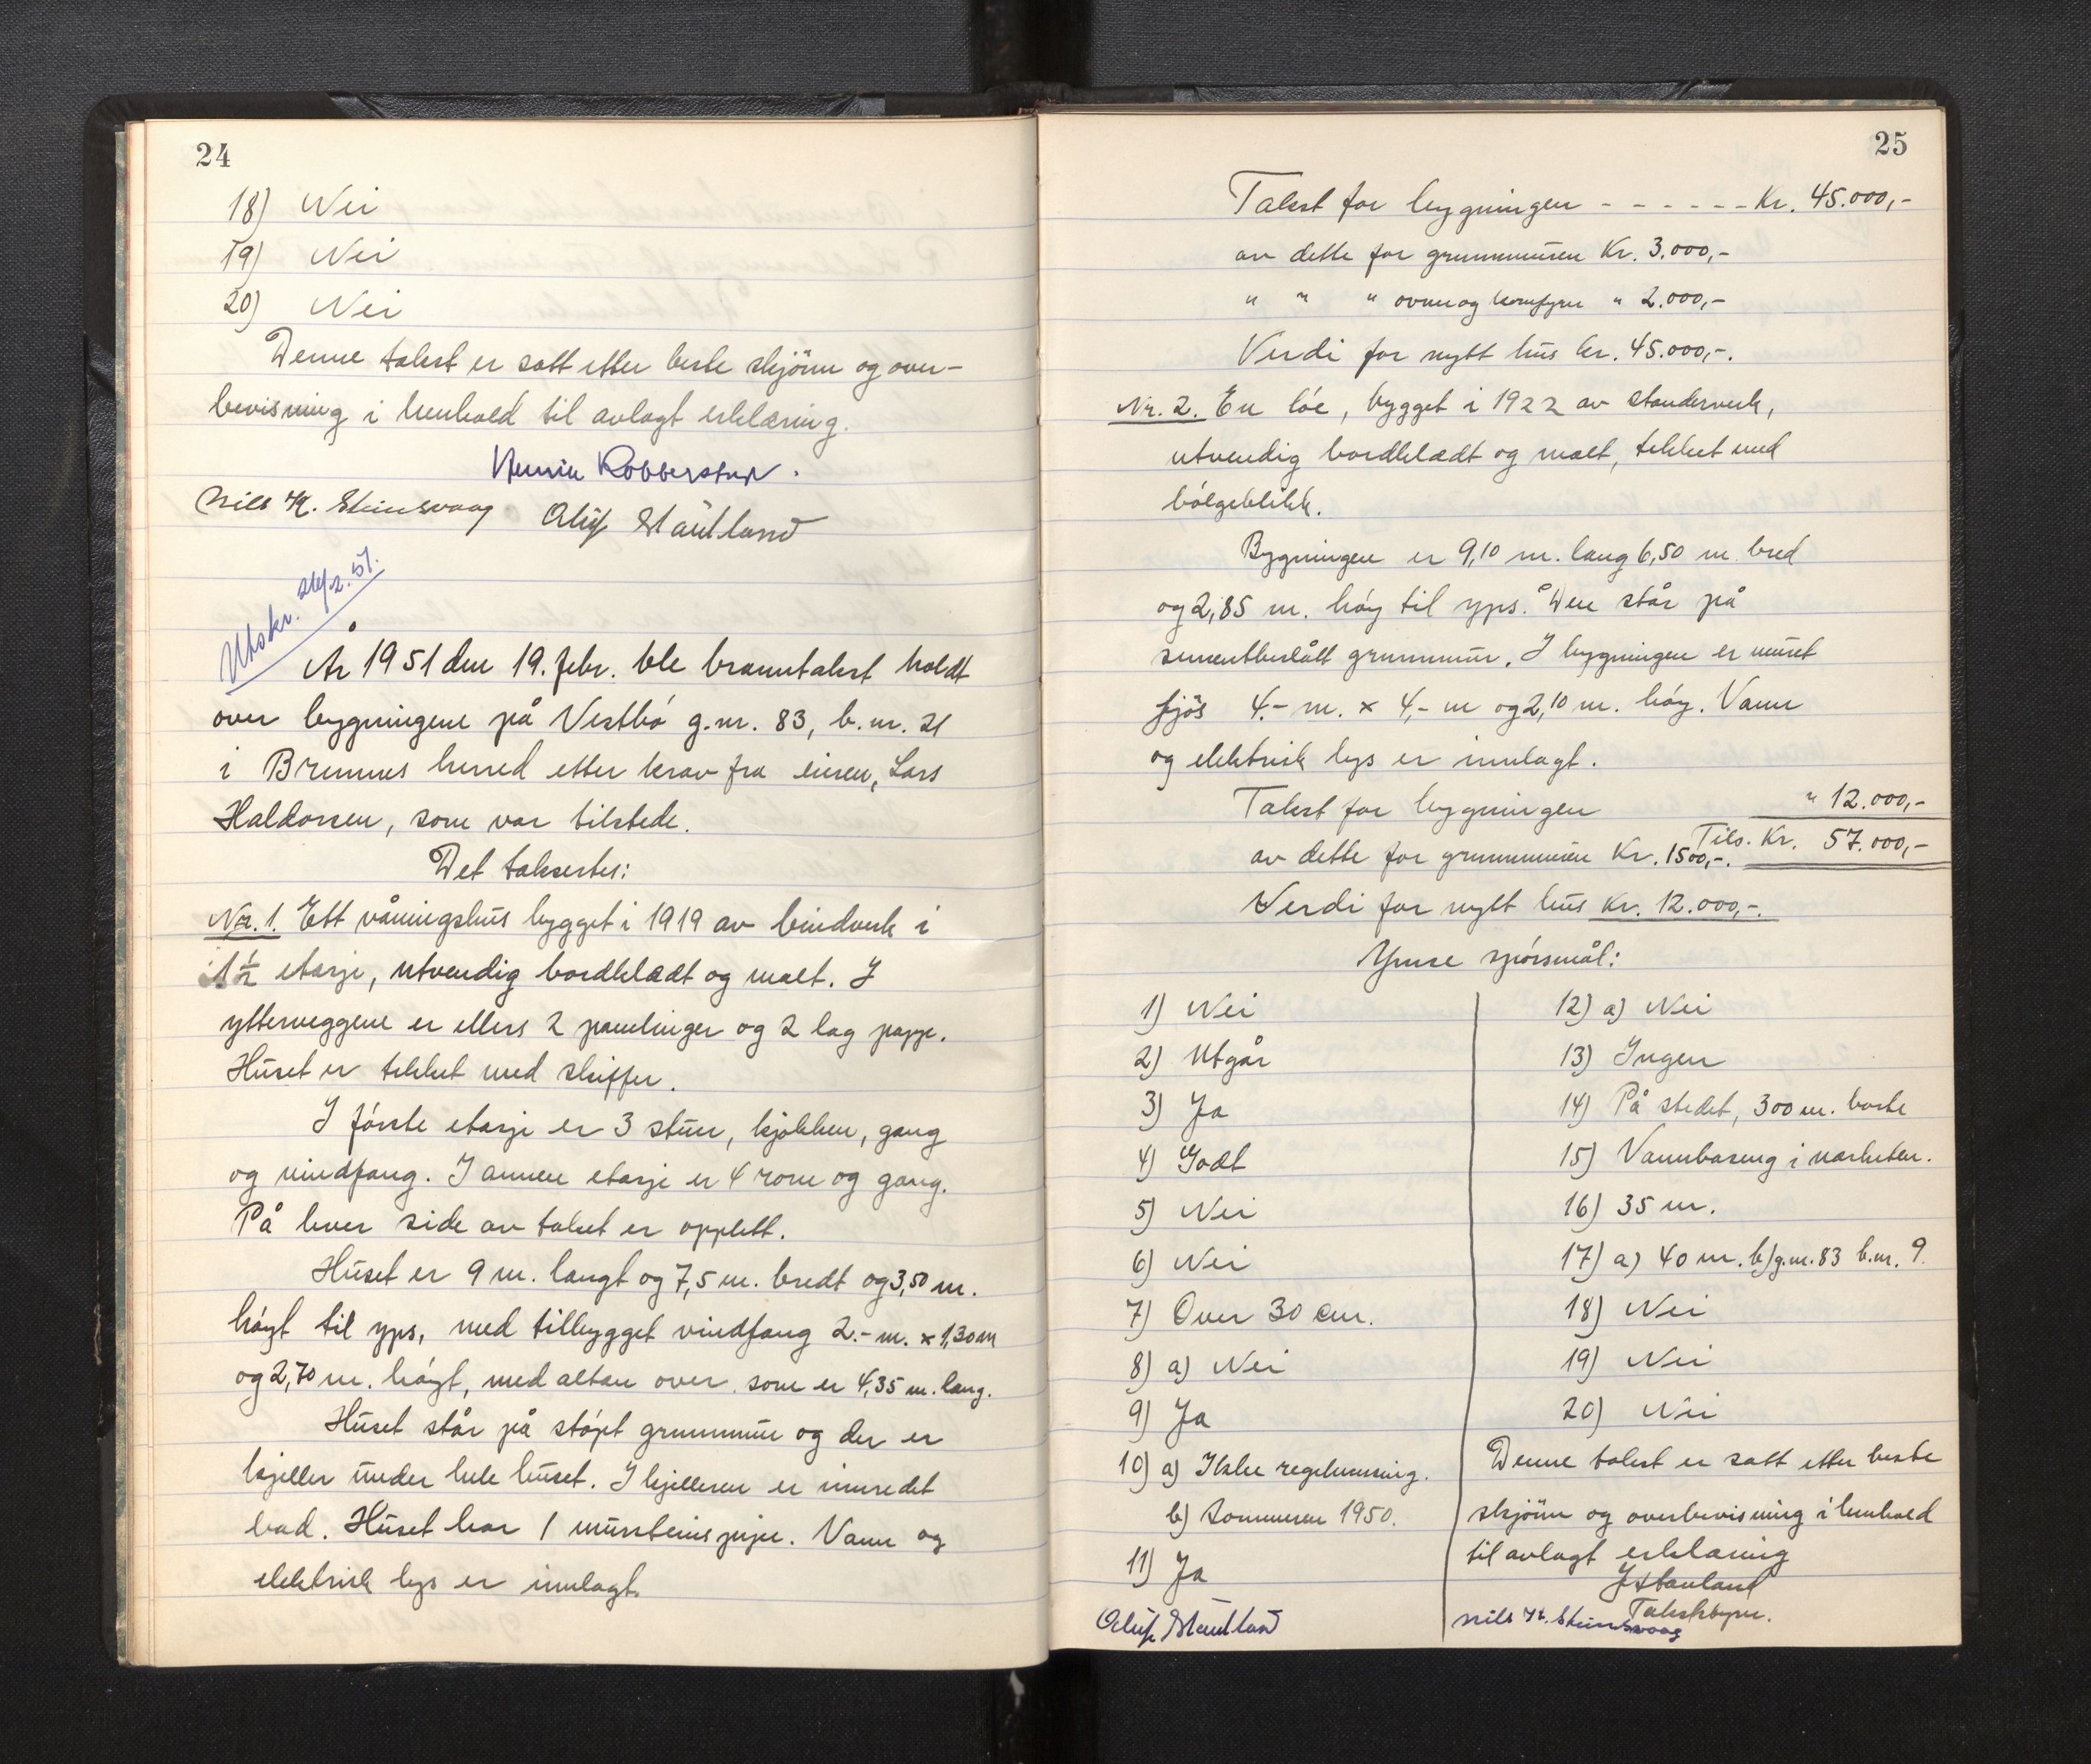 24
18) Nei
19) Nei
20) Nei
Denne takst er satt etter beste skjönn og over-
bevisning i henhold til avlagt erklæring.
Henrik Robberstad.
Nils H. Steinsvaag Oluf Stautland
Utskr. 24/2. 51.
År 1951 den 19. febr. ble branntakst holdt
over bygningene på Vestbö g.nr. 83, b.nr. 21
i Bremnes herred etter krav fra eieren, Lars
Haldorsen, som var tilstede.
Det taksertes:
Nr. 1. Ett våningshus bygget i 1919 av bindverk i
1 1/2 etasje, utvendig bordklædt og malt. I
ytterveggene er ellers 2 panelinger og 2 lag papp.
Huset er tekket med skiffer.
I förste etasje er 3 stuer, kjökken, gang
og vindfang. I annen etasje er 4 rom og gang.
På hver side av taket er opplett.
Huset er 9 m. langt og 7,5 m. bredt og 3,50 m.
höyt til yps, med tilbygget vindfang 2.- m. x 1,30 m
og 2,70 m. höyt, med altan over som er 4,35 m. lang.
Huset står på stöpt grunnmur og der er
kjeller under hele huset. I kjelleren er innredet
bad. Huset har 1 mursteinspipe. Vann og
elektrisk lys er innlagt.
25
Takst for bygningen - - - - - - Kr. 45.000,-
av dette for grunnmuren Kr. 3.000,-
" " " ovner og komfyrer " 2.000,-
Verdi for nytt hus kr. 45.000,-.
Nr. 2. En löe, bygget i 1922 av standerverk,
utvendig bordklædt og malt, tekket med
bölgeblikk.
Bygningen er 9,10 m. lang 6,50 m. bred
og 2,85 m. höy til yps. Den står på
sementbeslått grunnmur. I bygningen er muret
fjös 4.- m. x 4,- m og 2,10 m. höy. Vann
og elektrisk lys er innlagt.
Takst for bygningen " 12.000,-
av dette for grunnmuren Kr. 1500,-. Tils. Kr. 57.000,-
Verdi for nytt hus kr. 12.000,-.
Ymse spörsmål:
1) Nei
2) Utgår
3) Ja
4) Godt
5) Nei
6) Nei
7) Over 30 cm.
8) a) Nei
9) Ja
10) a) Ikke regelmessig.
b) Sommeren 1950.
11) Ja
Oluf Stautland
12) a) Nei
13) Ingen
14) På stedet, 300 m. borte
15) Vannbaseng i nærheten.
16) 35 m.
17) a) 40 m. b) g.nr. 83 b.nr. 9.
18) Nei
19) Nei
20) Nei
Denne takst er satt etter beste
skjönn og overbevisning i henhold
til avlagt erklæring
Stautland
Takstbyrer.
Nils H. Steinsvaag